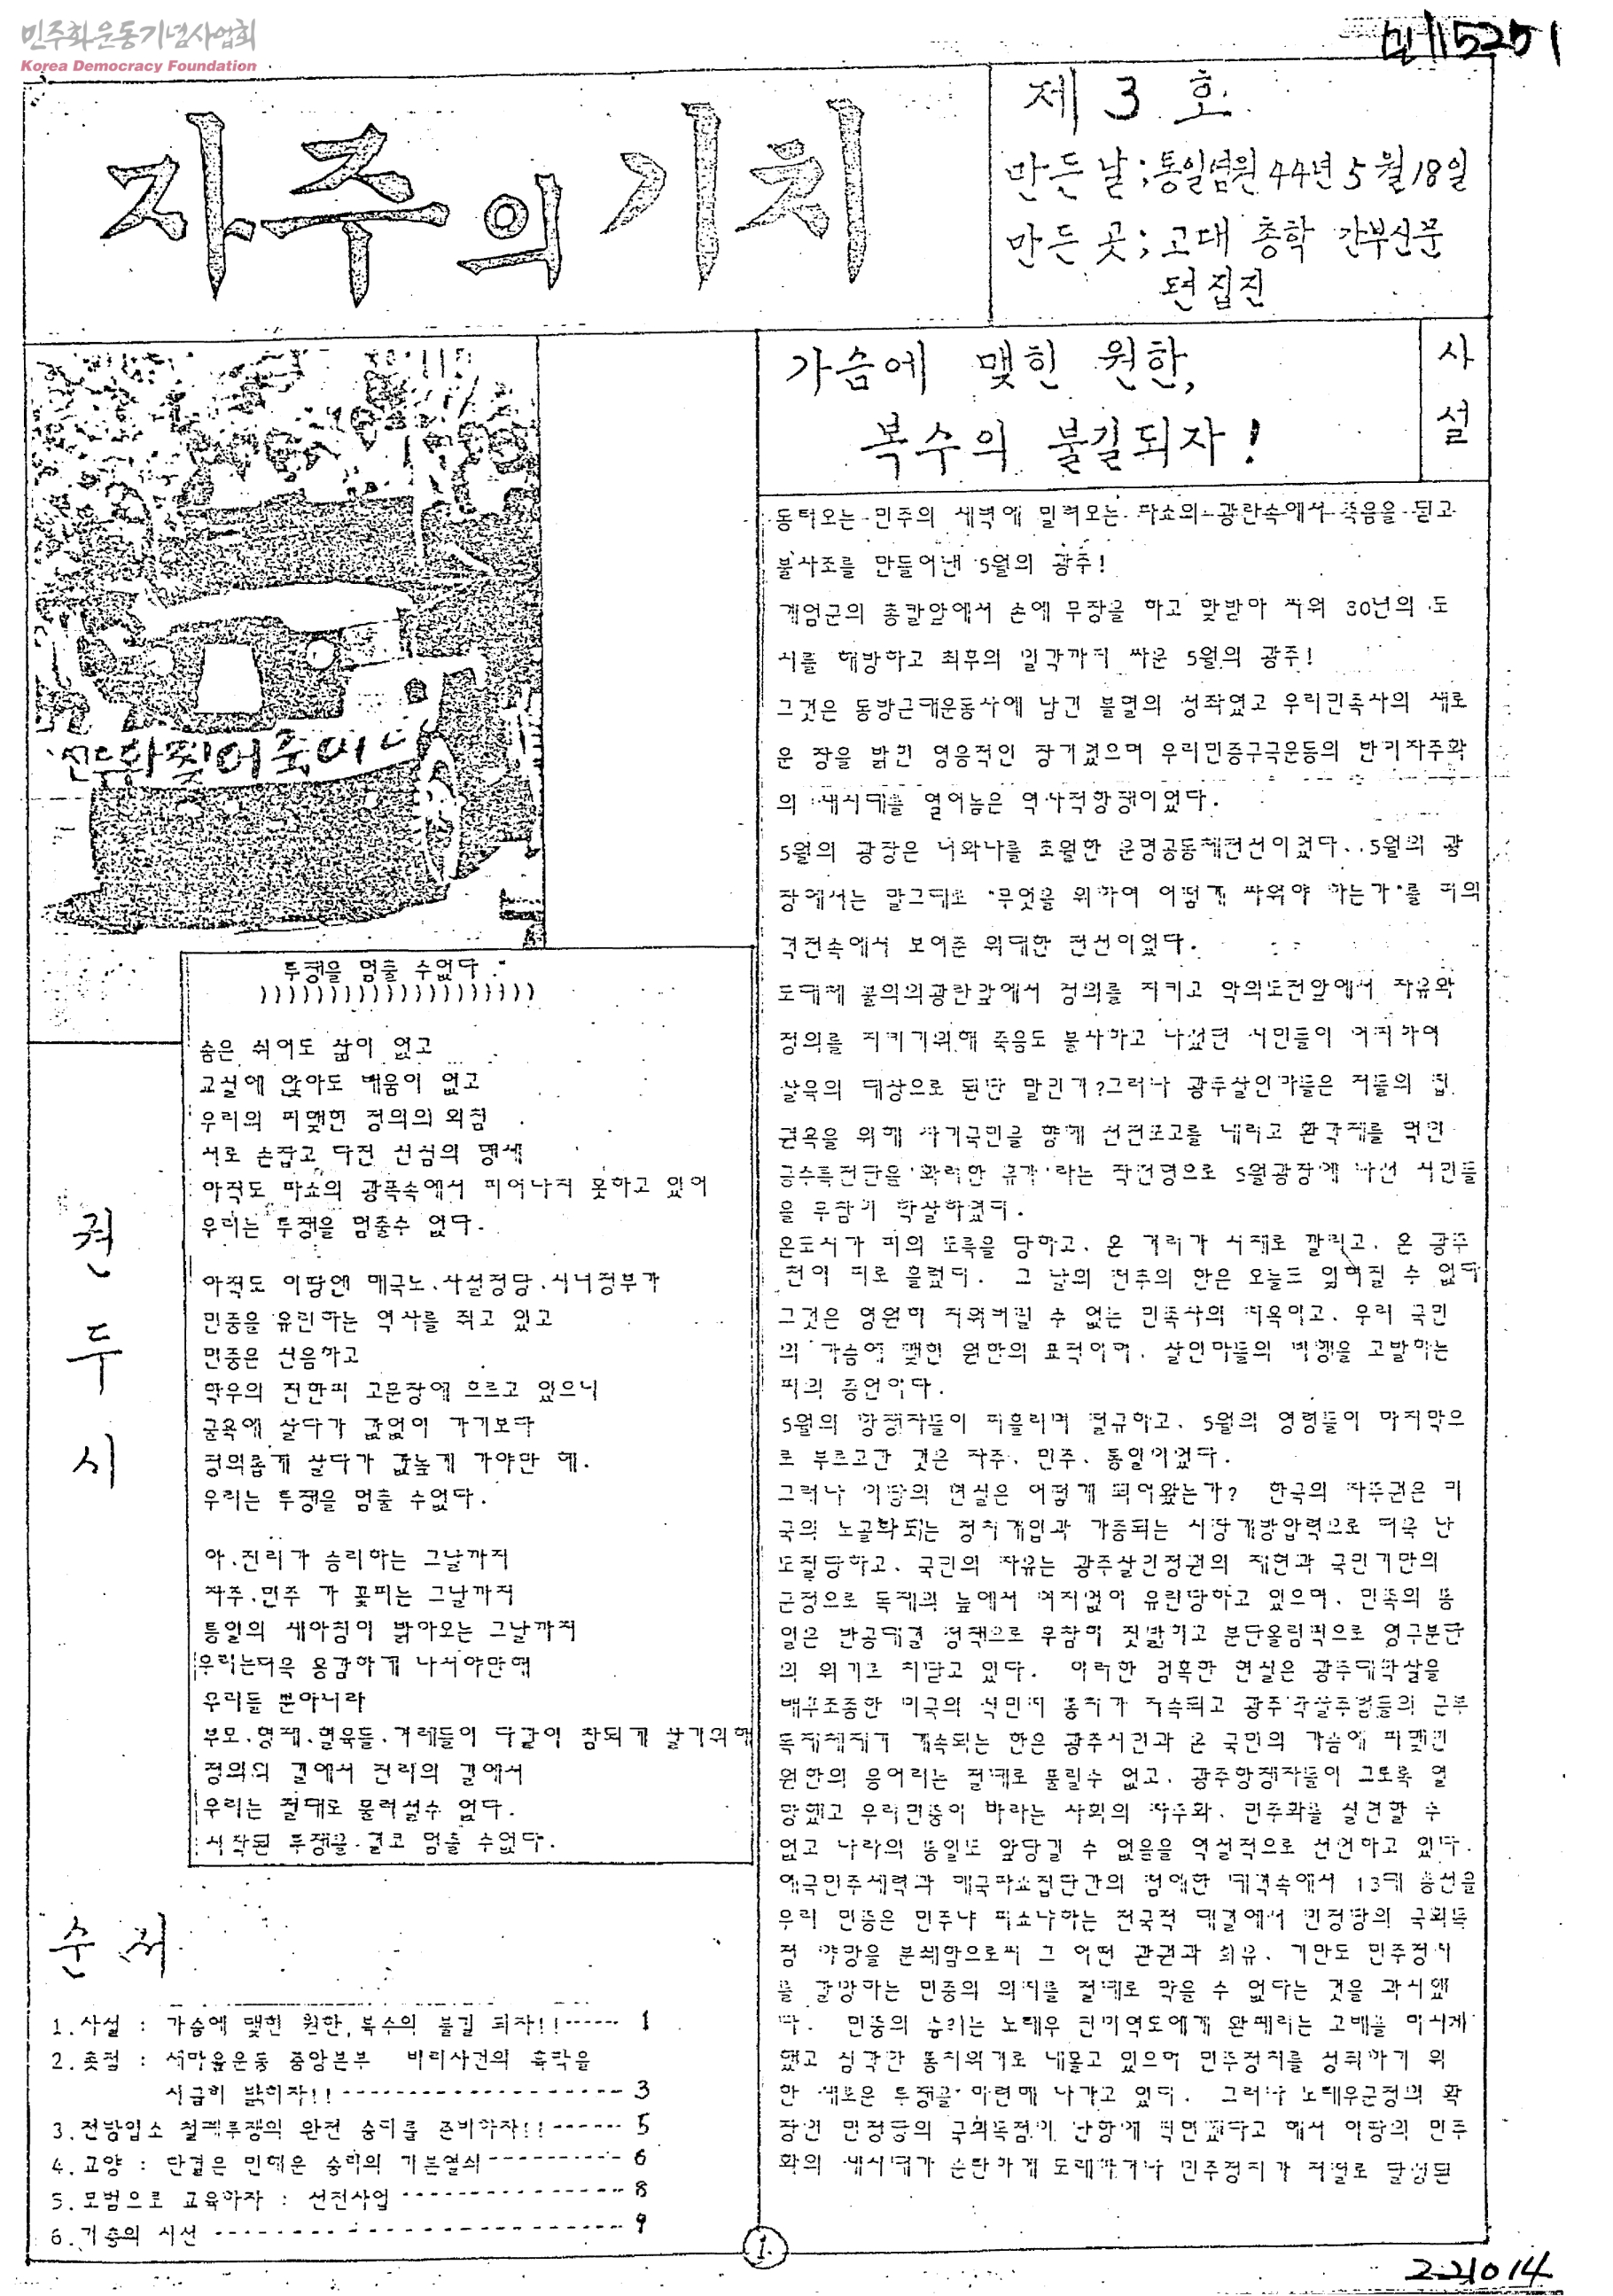 민주화운동기념사업회
Korea Democracy Foundation
자주의 기치
제 3 호
만든 날; 통일염원 44년 5월 18일
만든 곳; 고대 총학 간부신문
편집진
가슴에 맺힌 원한,
복수의 불길되자!
사
설
동터오는 민주의 새벽에 밀려오는 파쇼의 광란속에서 죽음을 딛고
불사조를 만들어낸 5월의 광주!
계엄군의 총칼앞에서 손에 무장을 하고 맞받아 싸워 80년의 도
시를 해방하고 최후의 일각까지 싸운 5월의 광주!
그것은 동방근대운동사에 남긴 불멸의 성좌였고 우리민족사의 새로
운 장을 밝힌 영웅적인 장거였으며 우리민중구국운동의 반미자주화
의 새시대를 열어놓은 역사적항쟁이었다.
5월의 광장은 너와나를 초월한 운명공동체전선이었다. 5월의 광
장에서는 말그대로 "무엇을 위하여 어떻게 싸워야 하는가"를 피의
격전속에서 보여준 위대한 전선이었다.
도대체 불의의광란앞에서 정의를 지키고 악의도전앞에서 자유와
정의를 지키기위해 죽음도 불사하고 나섰던 시민들이 어찌하여
살육의 대상으로 된단 말인가?그러나 광주살인마들은 저들의 집
권욕을 위해 자기국민을 향해 선전포고를 내리고 환각제를 먹인
공수특전단을 '화려한 휴가'라는 작전명으로 5월광장에 나선 시민들
을 무참히 학살하였다.
온도시가 피의 도륙을 당하고, 온 거리가 시체로 깔리고, 온 광주
전이 피로 흘렀다. 그 날의 천추의 한은 오늘도 잊혀질 수 없다
그것은 영원히 지워버릴 수 없는 민족사의 치욕이고, 우리 국민
의 가슴에 맺힌 원한의 표적이며, 살인마들의 만행을 고발하는
피의 증언이다.
5월의 항쟁자들이 피흘리며 절규하고, 5월의 영령들이 마지막으
로 부르고간 것은 자주, 민주, 통일이었다.
그러나 이땅의 현실은 어떻게 되어왔는가? 한국의 자주권은 미
국의 노골화되는 정치개입과 가중되는 시장개방압력으로 더욱 난
도질당하고, 국민의 자유는 광주살인정권의 재현과 국민기만의
군정으로 독재의 늪에서 여지없이 유린당하고 있으며, 민족의 통
일은 반공대결 정책으로 무참히 짓밟히고 분단올림픽으로 영구분단
의 위기로 치닫고 있다. 이러한 검혹한 현실은 광주대학살을
배후조종한 미국의 식민지 통치가 지속되고 광주학살주범들의 군부
독재체제가 계속되는 한은 광주시민과 온 국민의 가슴에 피맺힌
원한의 응어리는 절대로 풀릴수 없고, 광주항쟁자들이 그토록 열
망했고 우리민중이 바라는 사회의 자주화, 민주화를 실현할 수
없고 나라의 통일도 앞당길 수 없음을 역설적으로 선언하고 있다.
애국민주세력과 매국파쇼집단간의 첨예한 대격속에서 13대 총선을
우리 민중은 민주냐 파쇼냐하는 전국적 대결에서 민정당의 국회독
점 야망을 분쇄함으로써 그 어떤 관권과 회유, 기만도 민주정치
를 갈망하는 민중의 의지를 절대로 막을 수 없다는 것을 과시했
다. 민중의 승리는 노태우 친미역도에게 완패라는 고배를 마시게
했고 심각한 통치위기로 내몰고 있으며 민주정치를 성취하기 위
한 새로운 투쟁을 마련해 나가고 있다. 그러나 노태우군정의 확
장인 민정당의 국회독점이 난항에 직면했다고 해서 이땅의 민주
화의 새시대가 순탄하게 도래하거나 민주정치가 저절로 달성된
찢어죽이
투쟁을 멈출 수없다
))))))))))))))))))))
숨은 쉬어도 삶이 없고
교실에 앉아도 배움이 없고
우리의 피맺힌 정의의 외침
서로 손잡고 다진 선심의 맹세
아직도 파쇼의 광폭속에서 피어나지 못하고 있어
우리는 투쟁을 멈출수 없다.
아직도 이땅엔 매국노.사설정당.시녀정부가
민중을 유린하는 역사를 쥐고 있고
민중은 신음하고
학우의 진한피 고문장에 흐르고 있으니
굴욕에 살다가 값없이 가기보다
정의롭게 살다가 값높게 가야만 해.
우리는 투쟁을 멈출 수없다.
아.진리가 승리하는 그날까지
자주.민주 가 꽃피는 그날까지
통일의 새아침이 밝아오는 그날까지
우리는더욱 용감하게 나서야만해
우리들 뿐아니라
부모.형제.혈육들.겨레들이 다같이 참되게 살기위해
정의의 길에서 진리의 길에서
우리는 절대로 물러설수 없다.
시작된 투쟁을 결코 멈출 수없다.
권
두
시
순 서
1.사설 : 가슴에 맺힌 원한, 복수의 불길 되자!!------ 1
2.촛점 : 새마을운동 중앙본부 비리사건의 흑막을
시급히 밝히자!!-------------------- 3
3.전방입소 철폐투쟁의 완전 승리를 준비하자!!------ 5
4.교양 : 단결은 민해운 승리의 기본열쇠---------- 6
5.모범으로 교육하자 : 선전사업---------------- 8
6.기층의 시선----------------------------- 9
1.
221014